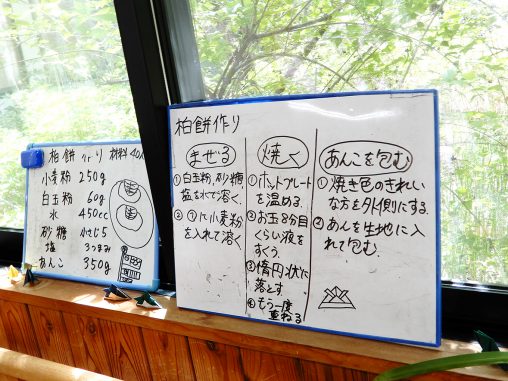 柏餅 作り 材料 40人
小麦粉 250g
白玉粉 60g
水 450cc
砂糖 小さじ5
塩 3つまみ
あんこ 350g
柏餅作り
まぜる
①白玉粉、砂糖
塩を水で溶く.
②①に小麦粉
を入れて溶く.
焼く
①ホットプレート
を温める.
②お玉8分目
くらい液を
すくう.
③楕円状に
落とす
④もう一度
重ねる
あんこを包む
①焼き色のきれい
な方を外側にする.
②あんを生地に入
れて包む.